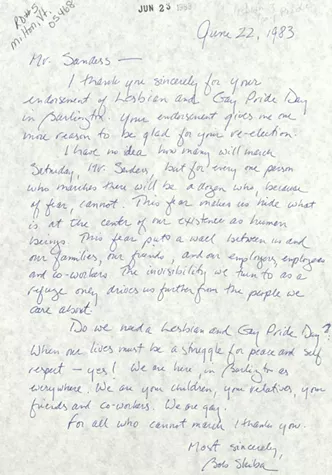 RD #5
Milton, Vt.
05468
JUN 23 1983
June 22, 1983
Mr. Sanders —
I thank you sincerely for your
endorsement of Lesbian and Gay Pride Day
in Burlington. Your endorsement gives me one
more reason to be glad for your re-election.
I have no idea how many will march
Saturday, Mr. Sanders, but for every one person
who marches there will be a dozen who, because
of fear, cannot. This fear makes us hide what
is at the center of our existence as human
beings. This fear puts a wall between us and
our families, our friends, and our employers, employees
and co-workers. The invisibility we turn to as a
refuge only drives us further from the people we
care about.
Do we need a Lesbian and Gay Pride Day?
When our lives must be a struggle for peace and self
respect — yes! We are here, in Burlington as
everywhere. We are your children, your relatives, your
friends and co-workers. We are gay.
For all who cannot march I thank you.
Most sincerely,
Bob Skiba